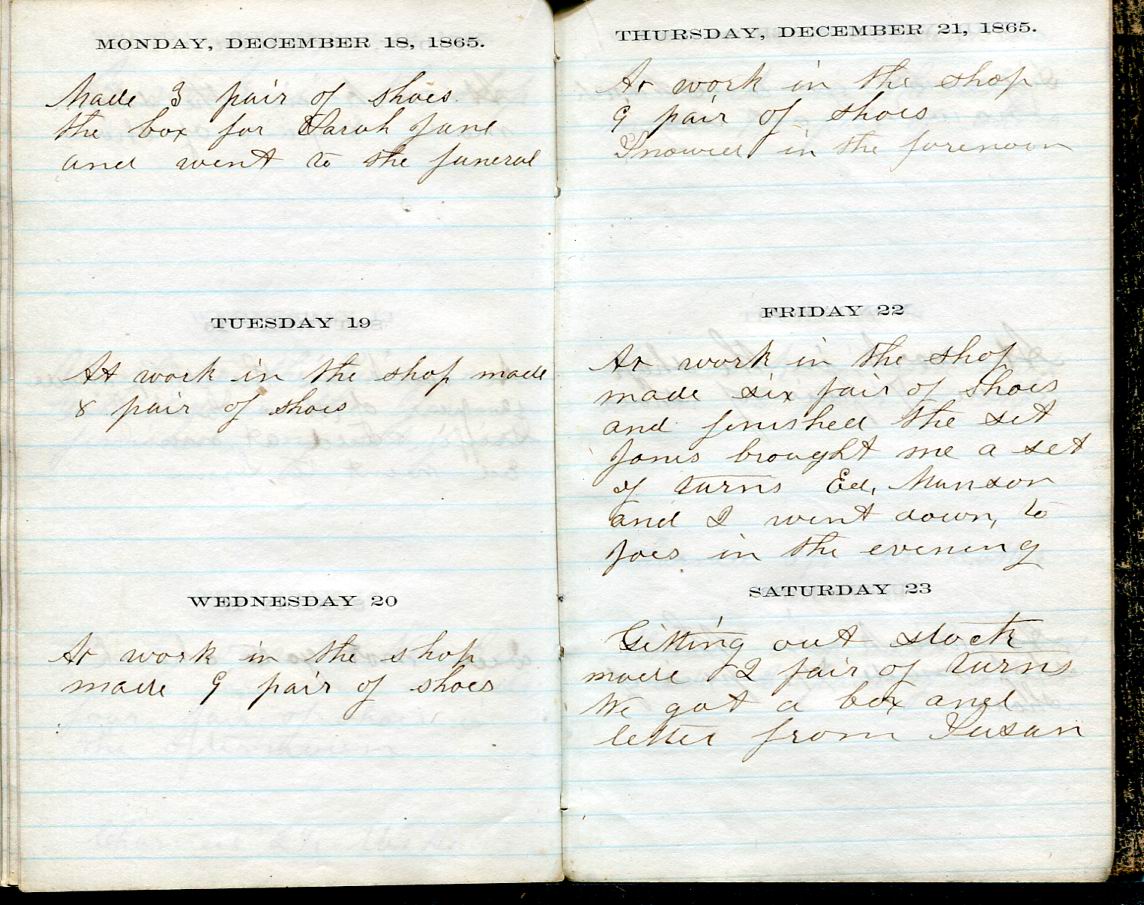 MONDAY, DECEMBER 18, 1865.
Made 3 pair of shoes.
the box for Sarah Jane
and went to the funeral
TUESDAY 19
At work in the shop made
8 pair of shoes
WEDNESDAY 20
At work in the shop
made 9 pair of shoes
THURSDAY, DECEMBER 21, 1865.
At work in the shop
9 pair of shoes
Snowed in the forenoon
FRIDAY 22
At work in the shop
made six pair of shoes
and finished the set
Jones brought me a set
of turns Ed, Munson
and I went down, to
Joes in the evening
SATURDAY 23
Gitting out stock
made 2 pair of turns
We got a box and
letter from Susan